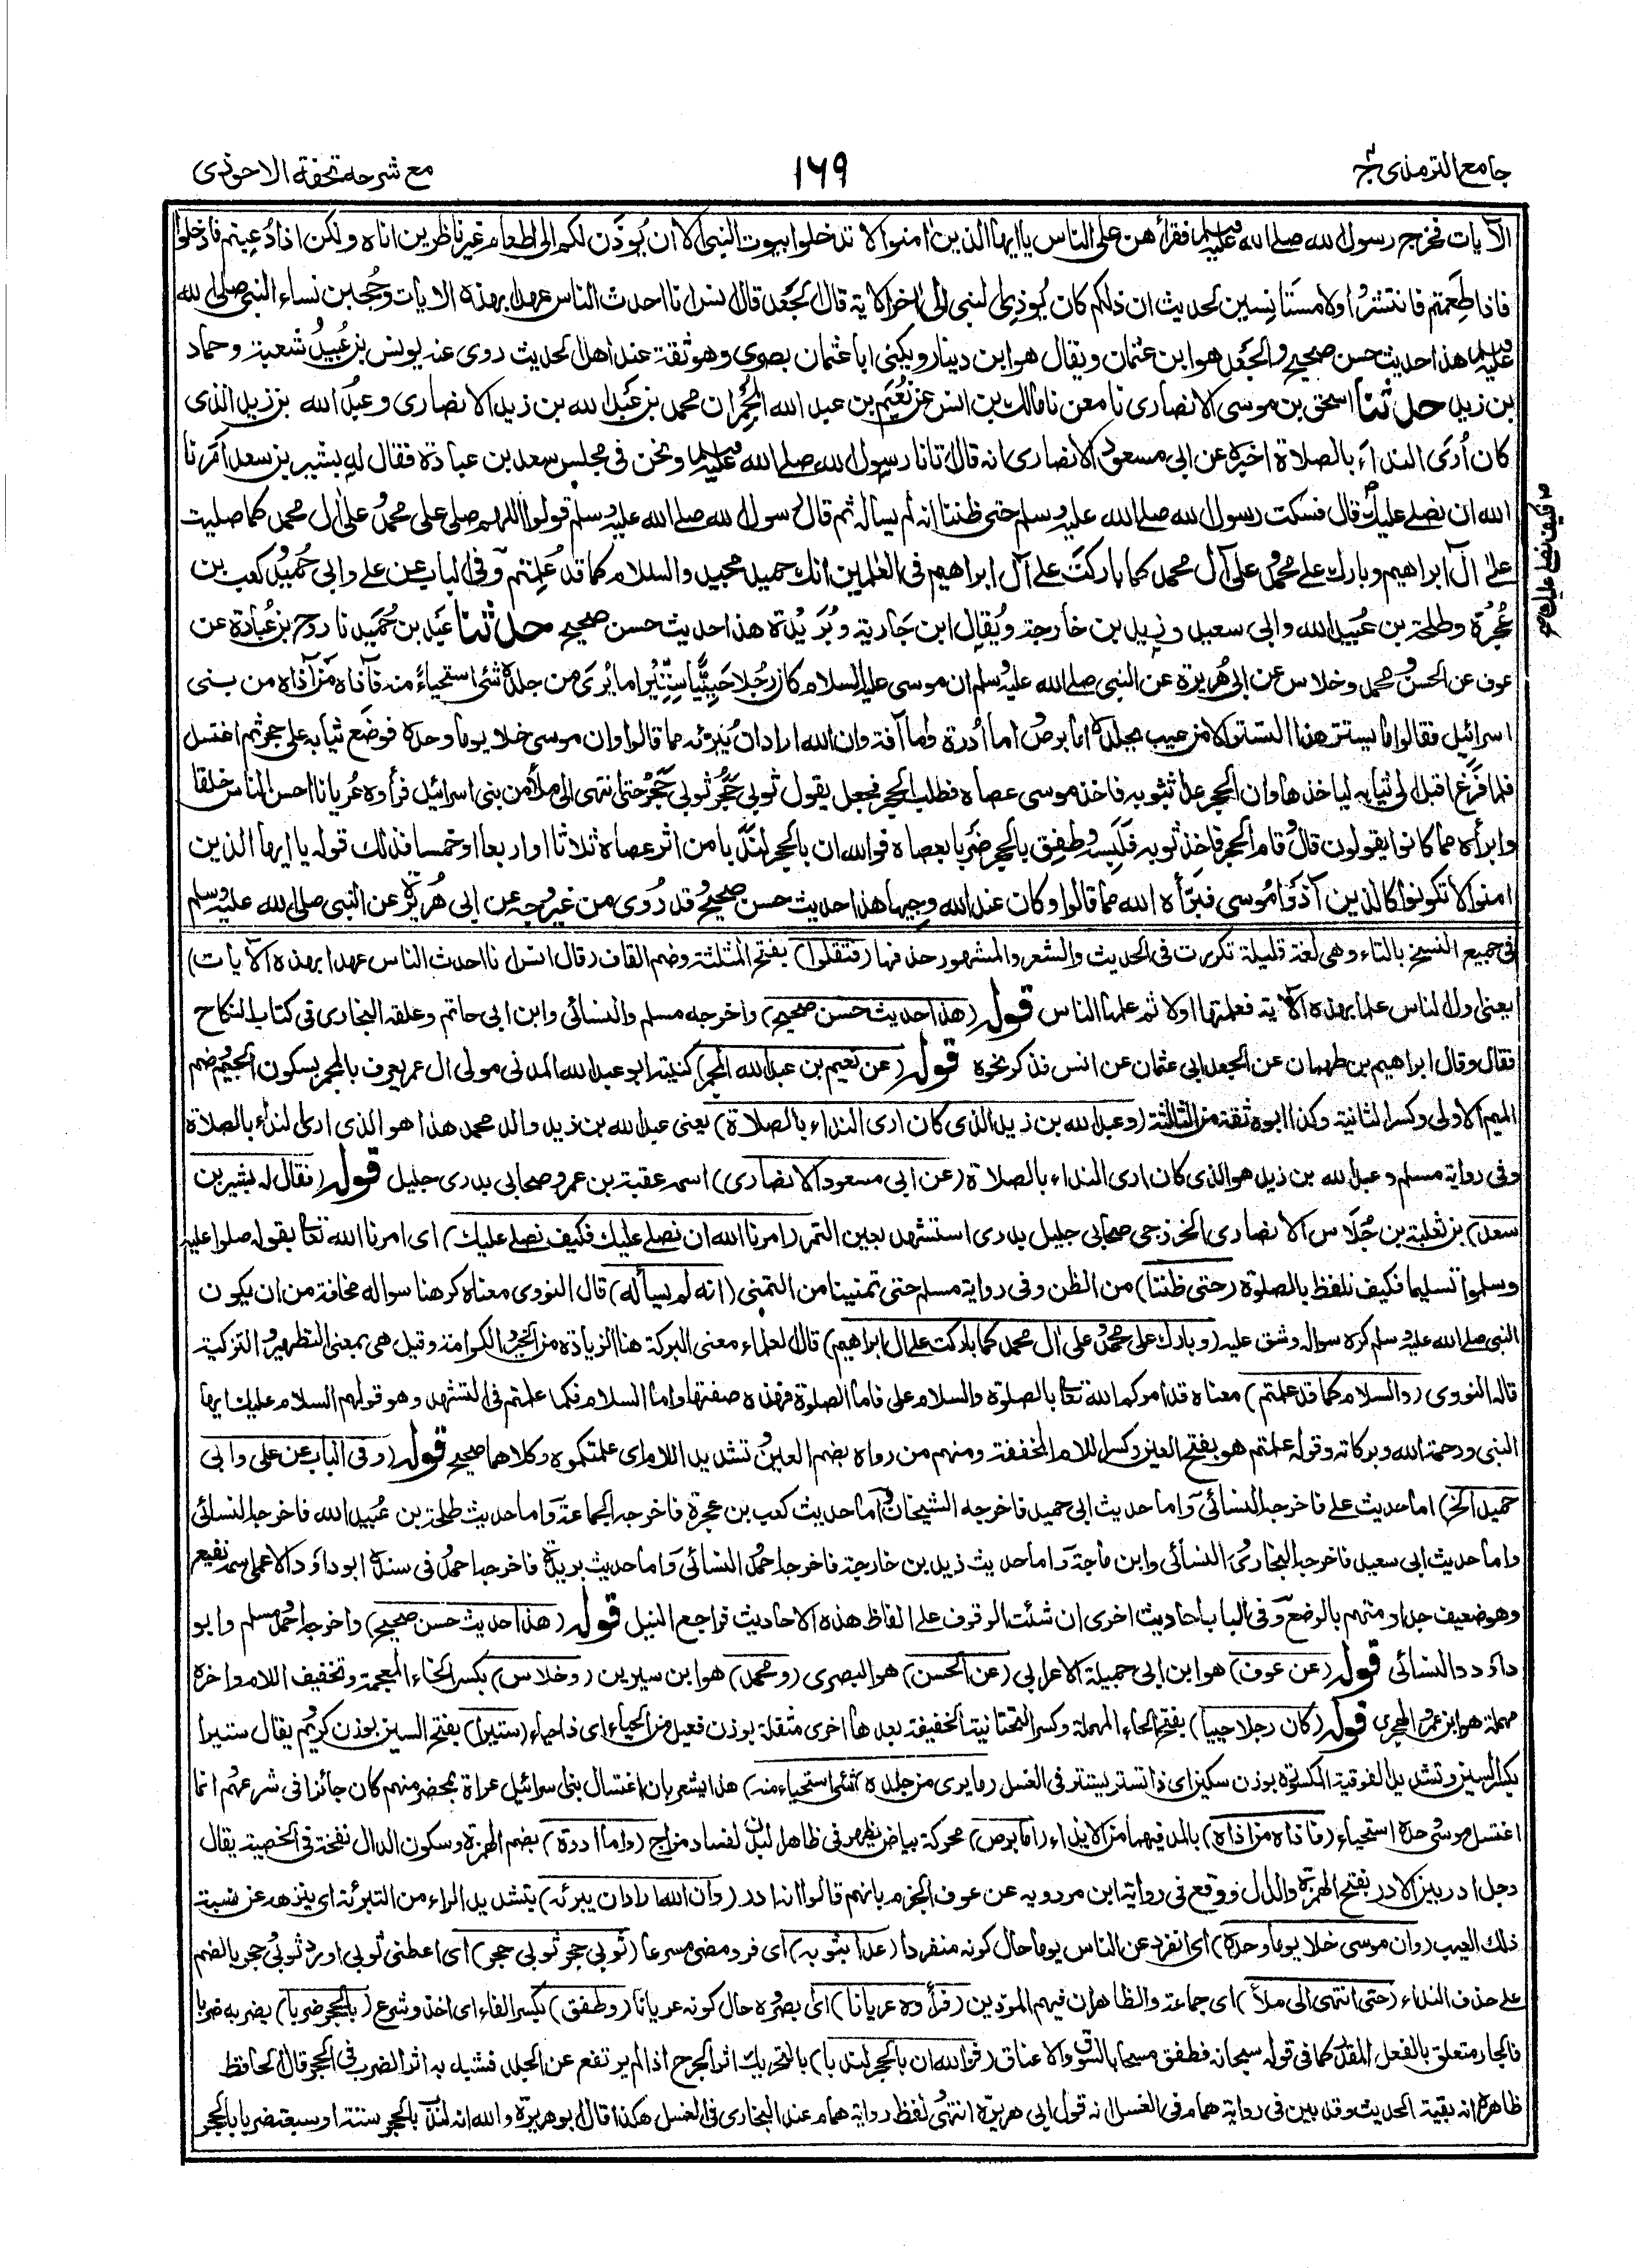 جامع الترمذى ج٤
١٦٩
مع شرحه تحفة الاحوذى
الآيات فخرج رسول الله صلى الله عليه وسلم فقرأهن على الناس يا ايها الذين امنوا لا تدخلوا بيوت النبى الا ان يُوذَن لكم الى طعام غير ناظرين اناه ولكن اذا دُعيتم فادخلوا
فاذا طَعِمتم فانتشرُوا ولا مستانِسين لحديث ان ذلكم كان يُوذِى النبى الى اخر الاية قال الجعد قال انس انا احدث الناس عهدا بهذه الايات وحُجبن نساء النبى صلى الله
عليه وسلم هذا حديث حسن صحيح والجعد هو ابن عثمان ويقال هو ابن دينار ويكنى ابا عثمان بصرى وهو ثقة عند اهل الحديث روى عنه يونس بن عُبيد وشعبة وحماد
بن زيد حدثنا اسحق بن موسى الانصارى نا معن نا مالك بن انس عن نُعَيم بن عبد الله المُجمِر ان محمد بن عبد الله بن زيد الانصارى وعبد الله بن زيد الذى
كان اُرِىَ النداءَ بالصلاة اخبره عن ابى مسعود الانصارى انه قال اتانا رسول الله صلى الله عليه وسلم ونحن فى مجلس سعد بن عبادة فقال له بشير بن سعد اَمَرنا
الله ان نصلى عليك قال فسكت رسول الله صلى الله عليه وسلم حتى ظننا انه لم يسأله ثم قال رسول الله صلى الله عليه وسلم قولوا اللهم صلى على محمد وعلى ال محمد كما صليت
على آل ابراهيم وبارك على محمد وعلى آل محمد كما باركتَ على آل ابراهيم فى العلمين انك حميد مجيد والسلام كما قد عُلِمتم وفى الباب عن على وابى حُميد وكعب بن
عُجْرَة وطلحة بن عُبيد الله وابى سعيد وزيد بن خارجة ويُقال ابن جَارية وبُرَيْدة هذا حديث حسن صحيح حدثنا عَبد بن حُميد نا روح بن عُبادة عن
عوف عن الحسن ومحمد وخلاس عن ابى هُريرة عن النبى صلى الله عليه وسلم ان موسى عليه السلام كان رَجُلا حَيِيًّا سِتِّيْرا ما يُرَى من جلده شئ استحياءً منه فآذاه مَن آذاه من بنى
اسرائيل فقالوا ما يستتر هذا التستر الا من عيب بجلده اما برص واما اُدرة واما آفة وان الله اراد ان يُبرِّئه مما قالوا وان موسى خلا يوما وحده فوضَع ثيابه على حجر ثم اغتسل
فلما فَرَغ اقبل الى ثيابه لياخذها وان الحجر عدا بثوبه فاخذ موسى عصاه فطلب الحجر فجعل يقول ثوبى حَجَرُ ثوبى حَجَرُ حتى انتهى الى ملأٍ من بنى اسرائيل فرأوه عُريانا احسن الناس خلقا
وابرأه مما كانوا يقولون قال وقام الحجر فاخذ ثوبه فَلَبِسه وطَفِق بالحجر ضَربا بعصاه فوالله ان بالحجر لنَدَبا من اثر عصاه ثلاثا او اربعا او خمسا فذلك قوله يا ايها الذين
امنوا لا تكونوا كالذين آذَوْا مُوسى فبَرَّأه الله مما قالوا وكان عند الله وجيها هذا حديث حسن صحيح وقد رُوى من غير وجه عن ابى هُريرة عن النبى صلى الله عليه وسلم
صـ فكيف نصلى عليك صح
فى جميع النسخ بالتاء وهى لغة قليلة تكررت فى الحديث والشعر والمشهور حذفها (فتقلوا) بفتح المثلثة وضم القاف (قال انس انا احدث الناس عهدا بهذه الآيات)
يعنى اول الناس علما بهذه الآية فعلمتها اولا ثم علمها الناس قوله (هذا حديث حسن صحيح) واخرجه مسلم والنسائى وابن ابى حاتم وعلقه البخارى فى كتاب النكاح
فقال وقال ابراهيم بن طهمان عن الجعد ابى عثمان عن انس فذكر نحوه قوله (عن نعيم بن عبد الله المجمر) كنيته ابو عبد الله المدنى مولى ال عمر يعرف بالمجمر بسكون الجيم وضم
الميم الاولى وكسر الثانية وكذا ابوه ثقة من الثالثة (وعبد الله بن زيد الذى كان ارى النداء بالصلاة) يعنى عبد الله بن زيد والد محمد هذا هو الذى ارى النداء بالصلاة
وفى رواية مسلم وعبد الله بن زيد هو الذى كان ارى النداء بالصلاة (عن ابى مسعود الانصارى) اسمه عقبة بن عمرو صحابى بدرى جليل قوله (فقال له بشير بن
سعد) بن ثعلبة بن جُلَاس الانصارى الخزرجى صحابى جليل بدرى استشهد بعين التمر (امرنا الله ان نصلى عليك فكيف نصلى عليك) اى امرنا الله تعا بقوله صلوا عليه
وسلموا تسليما فكيف نلفظ بالصلوة (حتى ظننا) من الظن وفى رواية مسلم حتى تمنينا من التمنى (انه لم يسأله) قال النووى معناه كرهنا سواله مخافة من ان يكون
النبى صلى الله عليه وسلم كره سواله وشق عليه (وبارك على محمد وعلى ال محمد كما باركت على ال ابراهيم) قال العلماء معنى البركة هنا الزيادة من الخير والكرامة وقيل هى بمعنى التطهير والتزكية
قاله النووى (والسلام كما قد علمتم) معناه قد امركم الله تعا بالصلوة والسلام على فاما الصلوة فهذه صفتها واما السلام فكما علمتم فى التشهد وهو قولهم السلام عليك ايها
النبى ورحمة الله وبركاته وقوله علمتم هو بفتح العين وكسر اللام المخففة ومنهم من رواه بضم العين وتشديد اللام اى علمتكموه وكلاهما صحيح قوله (وفى الباب عن على وابى
حميد الخ) اما حديث على فاخرجه النسائى واما حديث ابى حميد فاخرجه الشيخان واما حديث كعب بن عجرة فاخرجه الجماعة واما حديث طلحة بن عُبيد الله فاخرجه النسائى
واما حديث ابى سعيد فاخرجه البخارى والنسائى وابن ماجة واما حديث زيد بن خارجة فاخرجه احمد والنسائى واما حديث بريدة فاخرجه احمد وفى سنده ابو داؤد الاعمى اسمه نفيع
وهو ضعيف جدا ومتهم بالوضع وفى الباب احاديث اخرى ان شئت الوقوف على الفاظ هذه الاحاديث فراجع النيل قوله (هذا حديث حسن صحيح) واخرجه احمد ومسلم وابو
داؤد والنسائى قوله (عن عوف) هو ابن ابى جميلة الاعرابى (عن الحسن) هو البصرى (ومحمد) هو ابن سيرين (وخلاس) بكسر الخاء المعجمة وتخفيف اللام واخره
مهملة هو ابن عمرو الهجرى قوله (كان رجلا حييا) بفتح الحاء المهملة وكسر التحتانية الخفيفة بعدها اخرى مثقلة بوزن فعيل من الحياء اى ذا حياء (ستيرا) بفتح السين بوزن كريم يقال ستيرا
بكسر السين وتشديد الفوقية المكسورة بوزن سكين اى ذا تستر يستتر فى الغسل (ما يرى من جلده شئ استحياء منه) هذا يشعر بان اغتسال بنى اسرائيل عراة بمحضر منهم كان جائزا فى شرعهم انما
اغتسل موسى وحده استحياء (فاذاه من اذاه) بالمد فيهما من الايذاء (اما برص) محركة بياض يظهر فى ظاهر البدن لفساد مزاج (واما ادرة) بضم الهمزة وسكون الدال نفخة فى الخصية يقال
رجل ادر بين الادر بفتح الهمزة والدال ووقع فى رواية ابن مردويه عن عوف الجزم بانهم قالوا انه ادر (وان الله اراد ان يبرئه) بتشديد الراء من التبرئة اى ينزهه عن نسبة
ذلك العيب (وان موسى خلا يوما وحده) اى انفرد عن الناس يوما حال كونه منفردا (عدا بثوبه) اى فر ومضى مسرعا (ثوبى حجر ثوبى حجر) اى اعطنى ثوبى او رد ثوبى حجر بالضم
على حذف النداء (حتى انتهى الى ملأ) اى جماعة والظاهر ان فيهم الموذين (فرأوه عريانا) اى بصروه حال كونه عريانا (وطفق) بكسر الفاء اى اخذ وشرع (بالحجر ضربا) يضربه ضربا
فالجار متعلق بالفعل المقدر كما فى قوله سبحانه فطفق مسحا بالسوق والاعناق (فوالله ان بالحجر لندبا) بالتحريك اثر الجرح اذا لم يرتفع عن الجلد فشبه به اثر الضرب فى الحجر قال الحافظ
ظاهره انه بقية الحديث وقد بين فى رواية همام فى الغسل انه قول ابى هريرة انتهى لفظ رواية همام عند البخارى فى الغسل هكذا قال ابو هريرة والله انه لندب بالحجر ستة او سبعة ضربا بالحجر